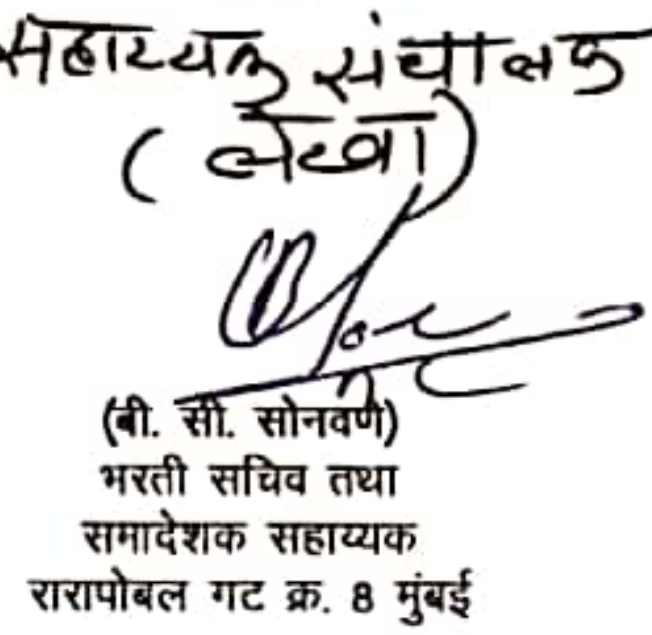 सहाय्यक संचालक
(लेखा)
(बी. सी. सोनवणे)
भरती सचिव तथा
समादेशक सहाय्यक
रारापोबल गट क्र. 8 मुंबई